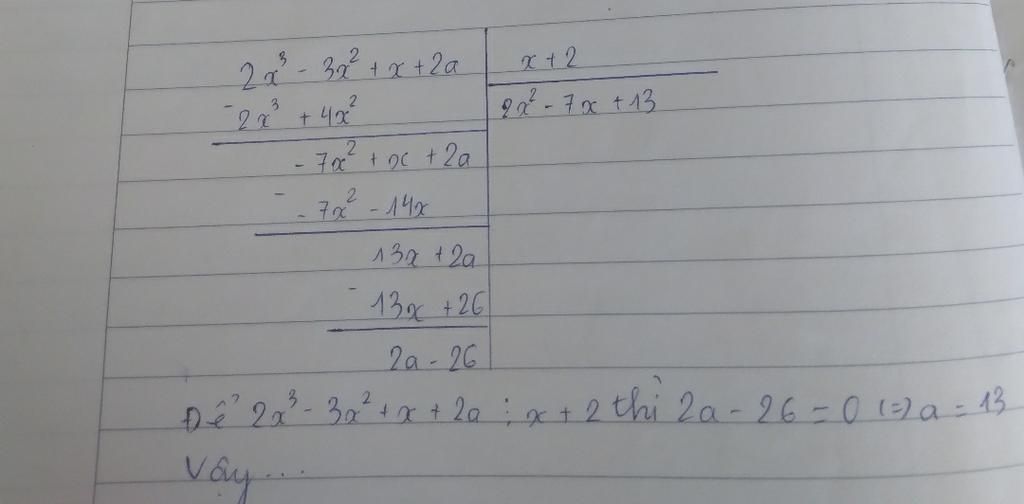 2x³ - 3x² + x + 2a | x + 2
- 2x³ + 4x² | 2x² - 7x + 13
- 7x² + x + 2a
- - 7x² - 14x
13x + 2a
- 13x + 26
2a - 26
Để 2x³ - 3x² + x + 2a ⋮ x + 2 thì 2a - 26 = 0 (=) a = 13
Vậy...